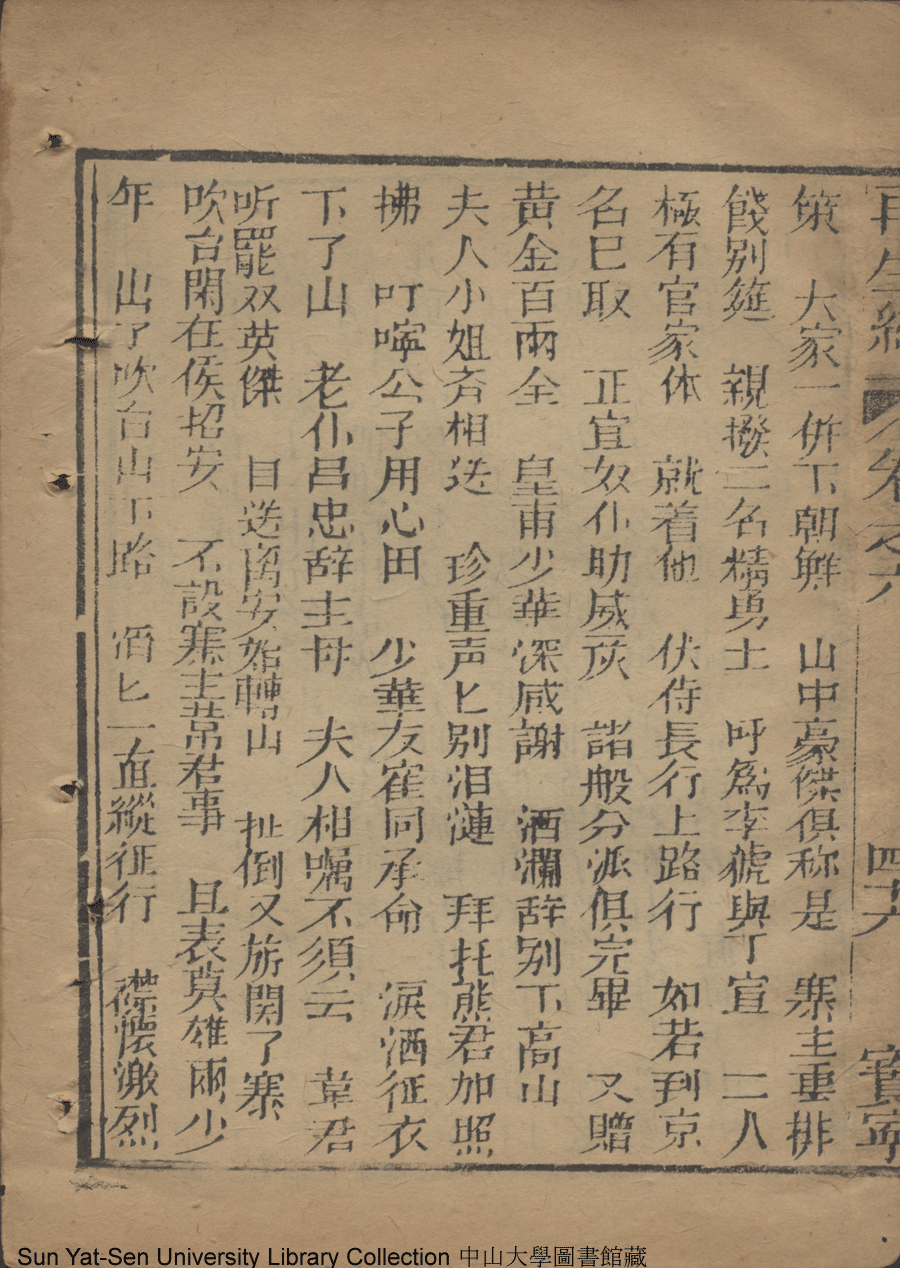 再生緣 卷之六 四十六 寶寧
策 大家一併下朝鮮 山中豪傑俱称是 寨主重排
餞别筵 親撥二名精勇士 呼為李猇與丁宣 二人
極有官家体 就着他 伏侍長行上路行 如若到京
名已取 正宜奴仆助威灰 諸般分派俱完畢 又贈
黄金百兩全 皇甫少華深感謝 酒瀾辞别下高山
夫人小姐斉相送 珍重声匕别泪漣 拜托熊君加照
拂 叮嚀公子用心田 少華友崔同承命 淚洒征衣
下了山 老仆昌忠辞主母 夫人相嘱不須云 韋君
听罷双英傑 目送 始轉山 扯倒义旂関了寨
吹台閑在俟招安 不設寨主韋君事 且表英雄兩少
年 出了吹台山下路 洒匕一直縱征行 襟懷激烈
Sun Yat-Sen University Library Collection 中山大學圖書館藏